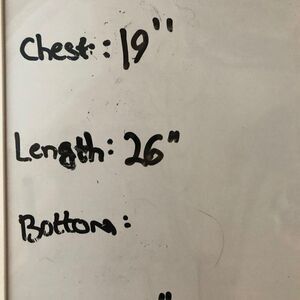 Chest: 19"
Length: 26"
Bottom: